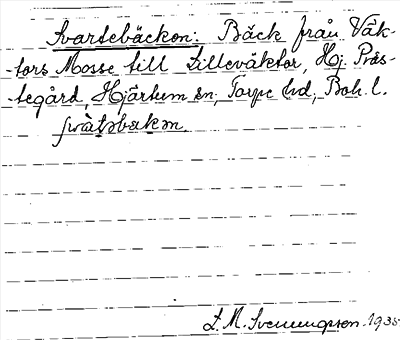 Svartebäcken: Bäck från Väk-
-tors Mosse till Lilleväktor, Hj. Präs-
-tegård, Hjärtum sn, Torpe hd, Boh. l.
L. M. Svenungsson. 1935